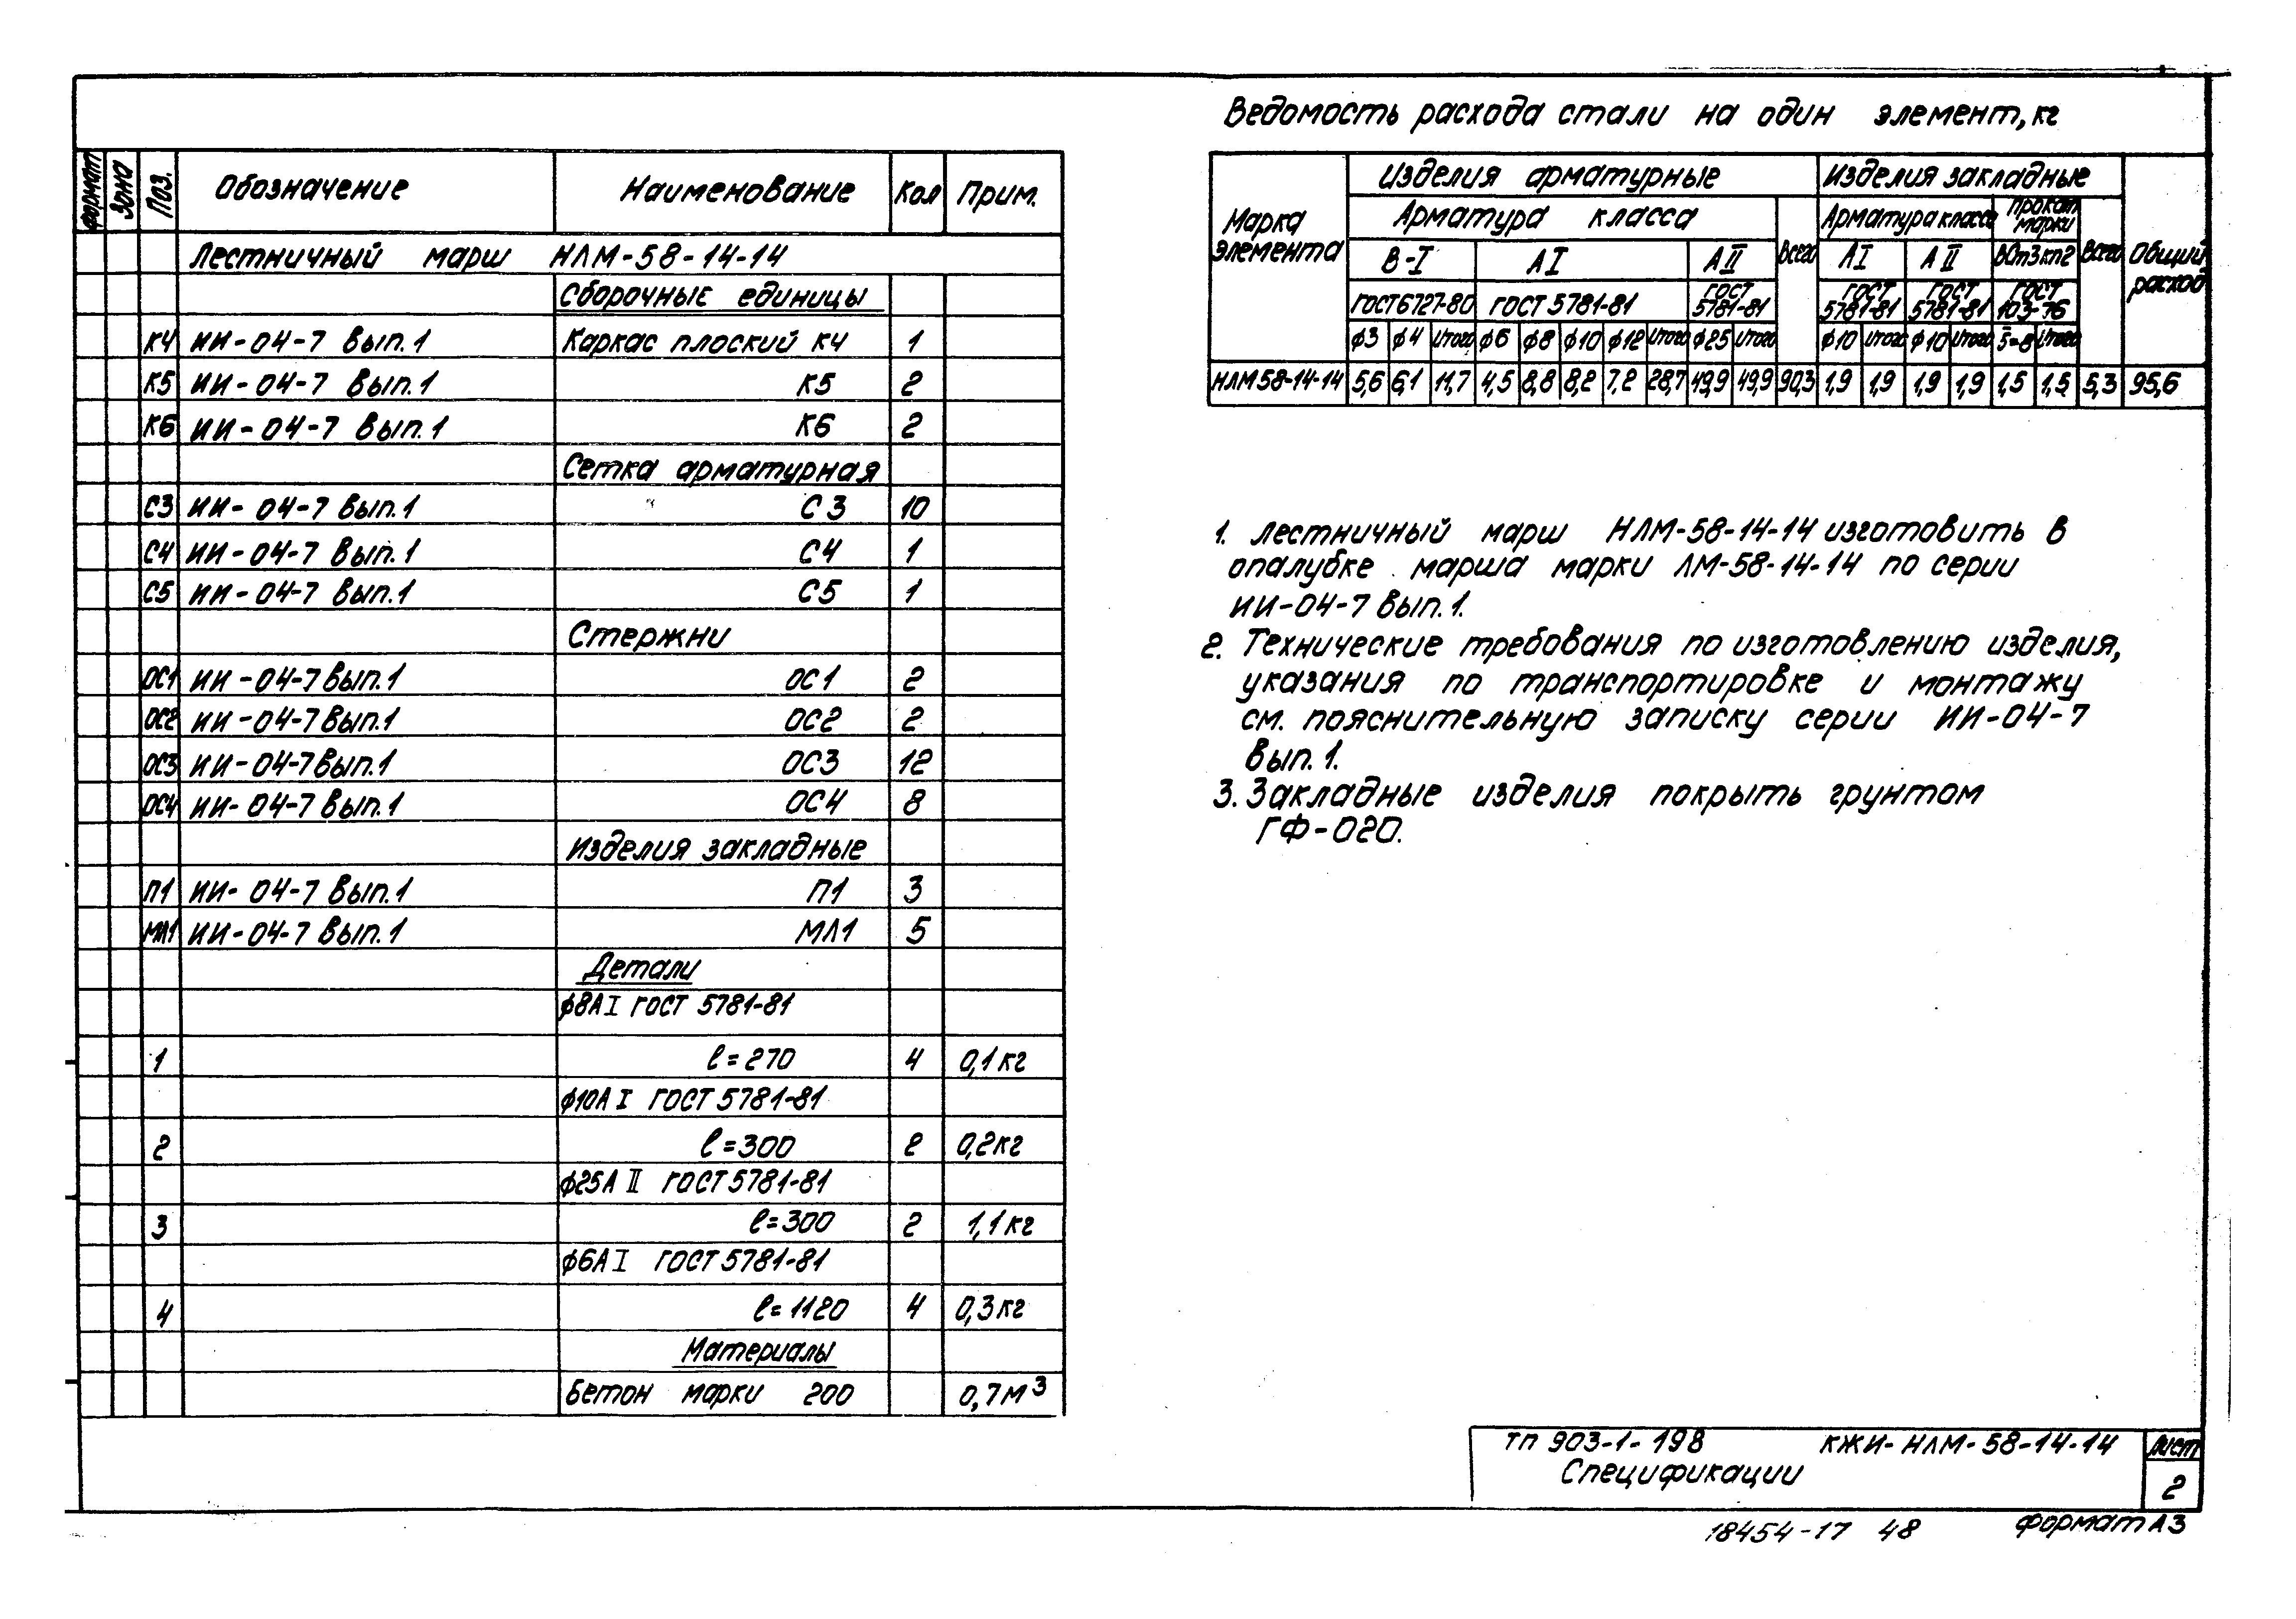 Формат Зона Поз. Обозначение Наименование Кол Прим.
Лестничный марш НЛМ-58-14-14
Сборочные единицы
К4 ИИ-04-7 Вып.1 Каркас плоский К4 1
К5 ИИ-04-7 Вып.1 К5 2
К6 ИИ-04-7 Вып.1 К6 2
Сетка арматурная
С3 ИИ-04-7 Вып.1 С3 10
С4 ИИ-04-7 Вып.1 С4 1
С5 ИИ-04-7 Вып.1 С5 1
Стержни
ОС1 ИИ-04-7 Вып.1 ОС1 2
ОС2 ИИ-04-7 Вып.1 ОС2 2
ОС3 ИИ-04-7 Вып.1 ОС3 12
ОС4 ИИ-04-7 Вып.1 ОС4 8
Изделия закладные
П1 ИИ-04-7 Вып.1 П1 3
МЛ1 ИИ-04-7 Вып.1 МЛ1 5
Детали
ϕ8АI ГОСТ 5781-81
1 ℓ=270 4 0,1кг
ϕ10АI ГОСТ 5781-81
2 ℓ=300 2 0,2кг
ϕ25АII ГОСТ 5781-81
3 ℓ=300 2 1,1кг
ϕ6АI ГОСТ 5781-81
4 ℓ=1120 4 0,3кг
Материалы
Бетон марки 200 0,7м³
Ведомость расхода стали на один элемент, кг
Марка элемента Изделия арматурные Изделия закладные Общий расход
Арматура класса Всего Арматура класса Прокат марки Всего
В-I АI АII АI АII ВСт3кп2
ГОСТ 6727-80 ГОСТ 5781-81 ГОСТ 5781-81 ГОСТ 5781-81 ГОСТ 5781-81 ГОСТ 103-76
ϕ3 ϕ4 Итого ϕ6 ϕ8 ϕ10 ϕ12 Итого ϕ25 Итого ϕ10 Итого ϕ10 Итого δ=8 Итого
НЛМ58-14-14 5,6 6,1 11,7 4,5 8,8 8,2 7,2 28,7 49,9 49,9 90,3 1,9 1,9 1,9 1,9 1,5 1,5 5,3 95,6
1. Лестничный марш НЛМ-58-14-14 изготовить в
опалубке марша марки ЛМ-58-14-14 по серии
ИИ-04-7 Вып.1.
2. Технические требования по изготовлению изделия,
указания по транспортировке и монтажу
см. пояснительную записку серии ИИ-04-7
Вып.1.
3. Закладные изделия покрыть грунтом
ГФ-020.
ТП 903-1-198 КЖИ-НЛМ-58-14-14 Лист
Спецификации 2
18454-17 48 Формат А3